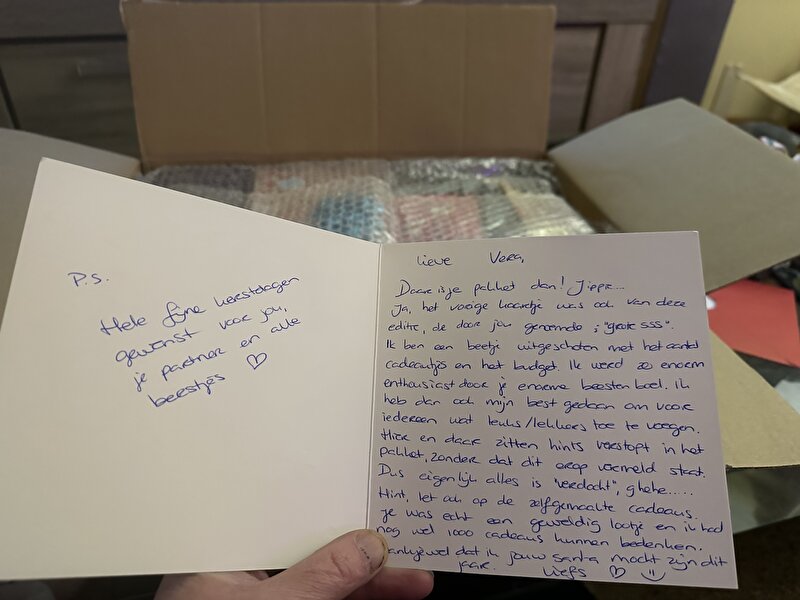 P.S.
Hele fijne kerstdagen
gewenst voor jou,
je partner en alle
beestjes ♡
Lieve Vera,
Daar is je pakket dan! Jippie....
Ja, het vorige kaartje was ook van deze
editie, de door jou genoemde ; "grote SSS".
Ik ben een beetje uitgeschoten met het aantal
cadeautjes en het budget. Ik werd zo enorm
enthousiast door je enorme beesten boel. Ik
heb dan ook mijn best gedaan om voor
iedereen wat leuks/lekkers toe te voegen.
Hier en daar zitten hints verstopt in het
pakket, zonder dat dit erop vermeld staat.
Dus eigenlijk alles is "verdacht", ghehe.....
Hint, let ook op de zelfgemaakte cadeaus.
Je was echt een geweldig lootje en ik had
nog wel 1000 cadeaus kunnen bedenken.
Dankjewel dat ik jouw santa mocht zijn dit
jaar. Liefs ♡ :)